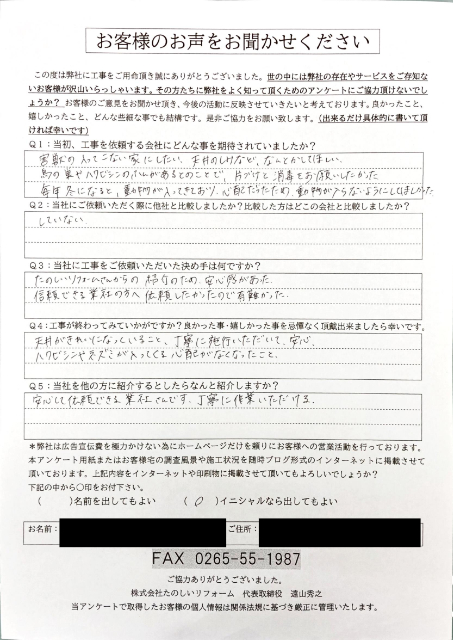 お客様のお声をお聞かせください
この度は弊社に工事をご用命頂き誠にありがとうございました。世の中には弊社の存在やサービスをご存知な
いお客様が沢山いらっしゃいます。その方たちに弊社をよく知って頂くためのアンケートにご協力頂けないでし
ょうか？ お客様のご意見をお聞かせ頂き、今後の活動に反映させていきたいと考えております。良かったこと、
嬉しかったこと、どんな些細な事でも結構です。是非ご協力をお願い致します。（出来るだけ具体的に書いて頂
ければ幸いです）
Q１：当初、工事を依頼する会社にどんな事を期待されていましたか？
害獣の入ってこない家にしたい。天井のしみなど、なんとかしてほしい。
鳥の巣やハクビシンのふんがあるとのことで、片づけと消毒をお願いしたかった
毎年冬になると、動物が入ってきており、心配だったため、動物が入らないようにしてほしかった
Q２：当社にご依頼いただく際に他社と比較しましたか？比較した方はどこの会社と比較しましたか？
していない
Q３：当社に工事をご依頼いただいた決め手は何ですか？
たのしいリフォームさんからの紹介のため、安心感があった。
信頼できる業社の方へ依頼したかったので有難かった。
Q４：工事が終わってみていかがですか？良かった事・嬉しかった事を忌憚なく頂戴出来ましたら幸いです。
天井がきれいになっていること、丁寧に施行いただいて、安心。
ハクビシンやネズミが入ってくる心配がなくなったこと。
Q５：当社を他の方に紹介するとしたらなんと紹介しますか？
安心して依頼できる業社さんです。丁寧に作業いただける。
＊弊社は広告宣伝費を極力かけない為にホームページだけを頼りにお客様への営業活動を行っております。
本アンケート用紙またはお客様宅の調査風景や施工状況を随時ブログ形式のインターネットに掲載させて
頂いております。上記内容をインターネットや印刷物に掲載させて頂いてもよろしいでしょうか？
下記の中から〇印をお付け下さい。
（　　）名前を出してもよい　　（ ○ ）イニシャルなら出してもよい
お名前：　　ご住所：
FAX 0265-55-1987
ご協力ありがとうございました。
株式会社たのしいリフォーム　代表取締役　遠山秀之
当アンケートで取得したお客様の個人情報は関係法規に基づき厳正に管理いたします。